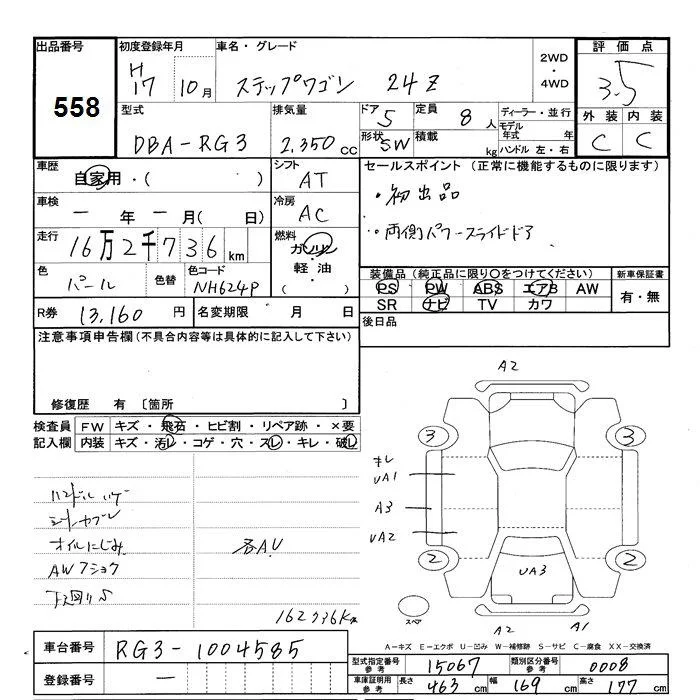 出品番号 初度登録年月 車名・グレード 2WD・4WD 評価点
558 H17 10月 ステップワゴン 24Z 3.5
型式 排気量 ドア 5 定員 8人 ディーラー・並行 外装 内装
DBA-RG3 2,350cc 形状 SW 積載 kg モデル年式 年 ハンドル 左・右 C C
車歴 自家用・( ) シフト AT セールスポイント(正常に機能するものに限ります)
車検 一年一月(日) 冷房 AC ・初出品
走行 16万2千736km 燃料 ガソリン・軽油・ ・両側パワースライドドア
色 パール 色替 色コード NH624P 装備品(純正品に限り○をつけてください) 新車保証書
PS PW ABS エアB AW 有・無
SR ナビ TV カワ
R券 13,160円 名変期限 月 日 後日品
注意事項申告欄(不具合内容等は具体的に記入して下さい)
修復歴 有 〔箇所 〕
検査員 FW キズ・飛石・ヒビ割・リペア跡・×要
記入欄 内装 キズ・汚レ・コゲ・穴・スレ・キレ・破レ
A2
3 3
キレ
UA1
A3
UA2
2 2
UA3
スペア
A2 A1
ハンドル
オイルにじみ 各AU
AWフショク
下廻りS
162736Km
A-キズ E-エクボ U-凹み W-補修跡 S-サビ C-腐食 XX-交換済
車台番号 RG3-1004585
型式指定番号 参考 15067 類別区分番号 参考 0008
登録番号 一
車庫証明用 参考 長さ 463cm 幅 169cm 高さ 177cm